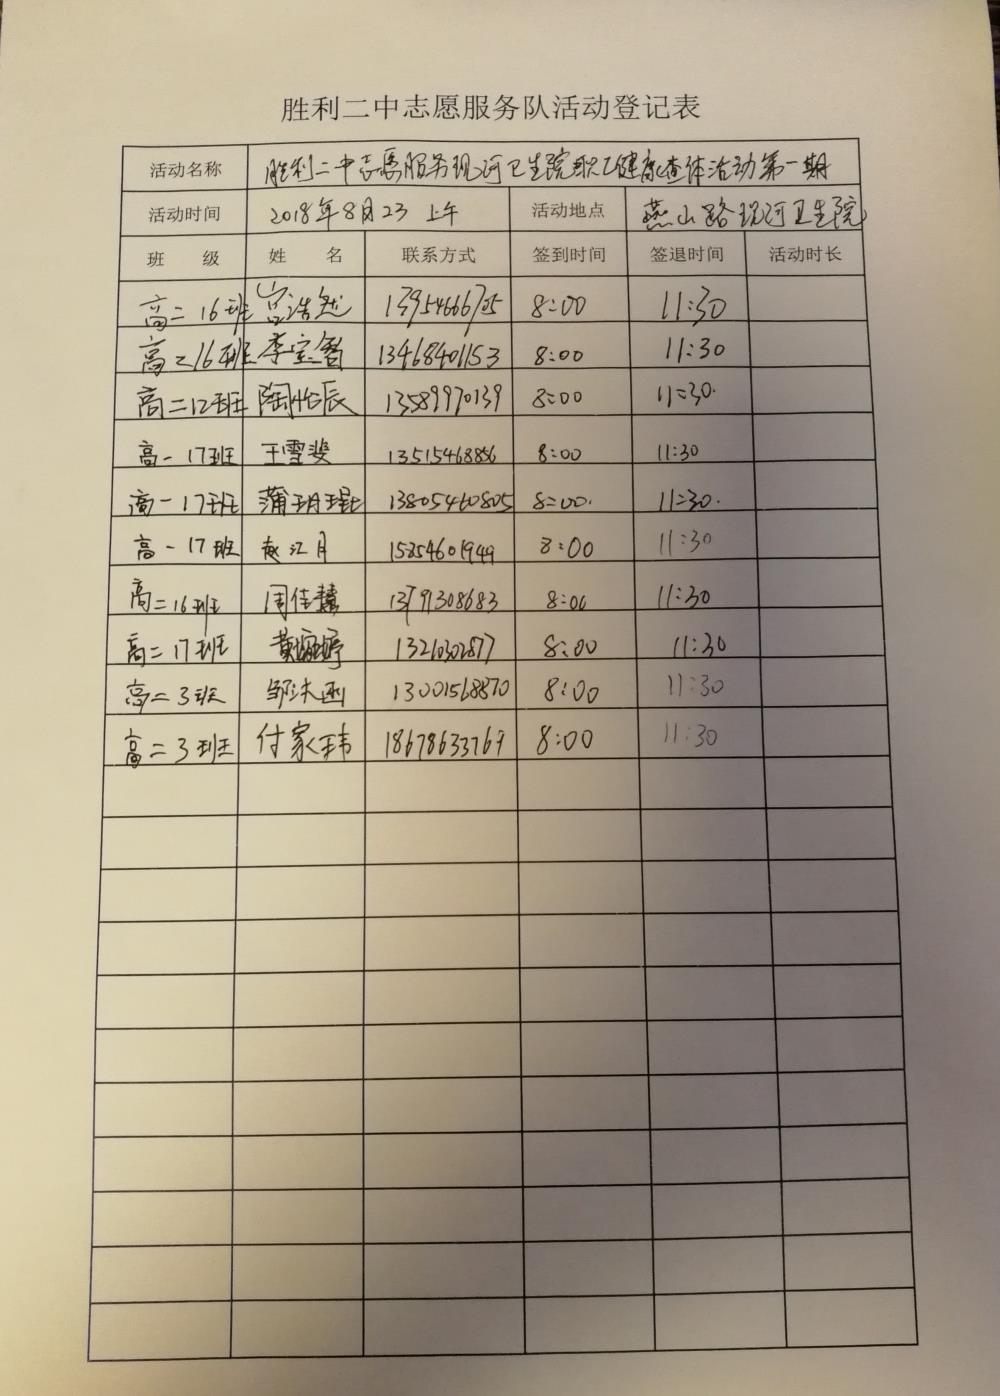 胜利二中志愿服务队活动登记表
活动名称 胜利二中志愿服务现河卫生院职工健康查体活动第一期
活动时间 2018年8月23 上午 活动地点 燕山路现河卫生院
班 级 姓 名 联系方式 签到时间 签退时间 活动时长
高二16班 宫浩然 13954666725 8:00 11:30
高二16班 李宝智 13468401153 8:00 11:30
高二12班 陶怡辰 13589970139 8:00 11:30
高一17班 王雪斐 13515468856 8:00 11:30
高一17班 蒲玥琨 13805460805 8:00 11:30
高一17班 赵江月 15254601949 8:00 11:30
高二16班 周佳慧 13791308683 8:00 11:30
高二17班 黄婷 8:00 11:30
高二3班 邹沐函 13001568870 8:00 11:30
高二3班 付家玮 18678633769 8:00 11:30